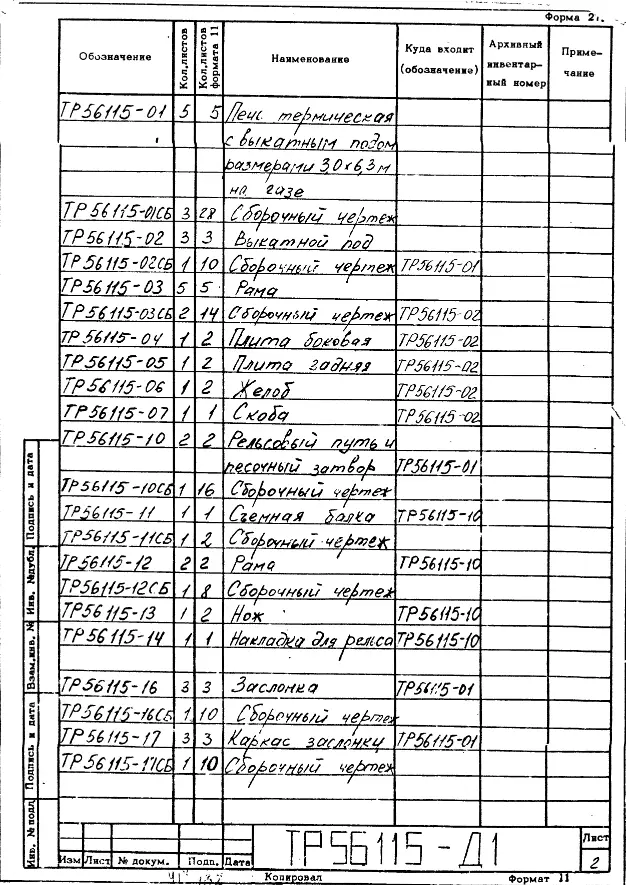 Форма 2
Обозначение Кол.листов Кол.листов формата 11 Наименование Куда входит (обозначение) Архивный инвентарный номер Примечание
ТР56115-01 5 5 Печь термическая
с выкатным подом
размерами 3,0х6,3м
на газе
ТР56115-01СБ 3 28 Сборочный чертеж
ТР56115-02 3 3 Выкатной под
ТР56115-02СБ 1 10 Сборочный чертеж ТР56115-01
ТР56115-03 5 5 Рама
ТР56115-03СБ 2 14 Сборочный чертеж ТР56115-02
ТР56115-04 1 2 Плита боковая ТР56115-02
ТР56115-05 1 2 Плита задняя ТР56115-02
ТР56115-06 1 2 Желоб ТР56115-02
ТР56115-07 1 1 Скоба ТР56115-02
ТР56115-10 2 2 Рельсовый путь и
песочный затвор ТР56115-01
ТР56115-10СБ 1 16 Сборочный чертеж
ТР56115-11 1 1 Съемная балка ТР56115-10
ТР56115-11СБ 1 2 Сборочный чертеж
ТР56115-12 2 2 Рама ТР56115-10
ТР56115-12СБ 1 8 Сборочный чертеж
ТР56115-13 1 2 Нож ТР56115-10
ТР56115-14 1 1 Накладка для рельса ТР56115-10
ТР56115-16 3 3 Заслонка ТР56115-01
ТР56115-16СБ 1 10 Сборочный чертеж
ТР56115-17 3 3 Каркас заслонки ТР56115-01
ТР56115-17СБ 1 10 Сборочный чертеж
Подпись и дата
Инв. №дубл.
Взам.инв. №
Подпись и дата
Инв. №подл
ТР56115-Д1
Лист
2
Изм Лист № докум. Подп. Дата
Копировал Формат 11